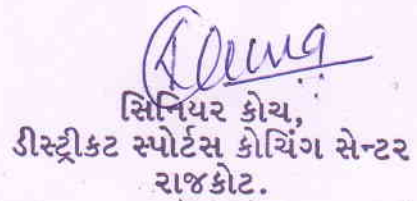 સિનિયર કોચ,
ડીસ્ટ્રીકટ સ્પોર્ટસ કોચિંગ સેન્ટર
રાજકોટ.